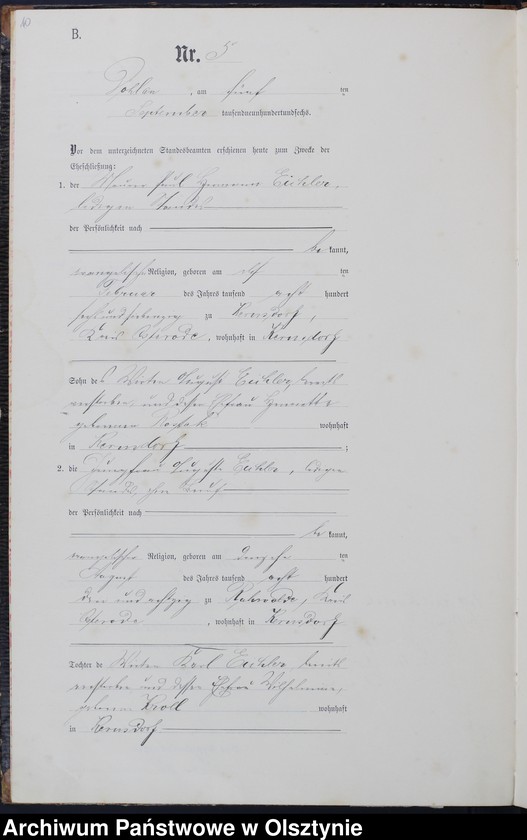 B.
Nr. 5
am fünf ten
September tausendneunhundertundsechs.
Vor dem unterzeichneten Standesbeamten erschienen heute zum Zwecke der
Eheschließung:
1. der Paul Hermann Eichler,
ledigen Standes
der Persönlichkeit nach
be kannt,
evangelischer Religion, geboren am elf ten
Februar des Jahres tausend acht hundert
sechsundsiebenzig zu Kernsdorf,
Kreis Osterode, wohnhaft in Kernsdorf
Sohn des Wirten August Eichler,
verstorben, und dessen Ehefrau Henriette
geborenen wohnhaft
in Kernsdorf ;
2. die Jungfrau Auguste Eichler, ledigen
Standes, ohne Beruf
der Persönlichkeit nach
be kannt,
evangelischer Religion, geboren am dreizehn ten
August des Jahres tausend acht hundert
drei und achtzig zu Kreis
Osterode, wohnhaft in Kernsdorf
Tochter des Wirten Karl Eichler,
verstorben und dessen Ehefrau Wilhelmine,
geborenen Kroll wohnhaft
in Kernsdorf
Archiwum Państwowe w Olsztynie